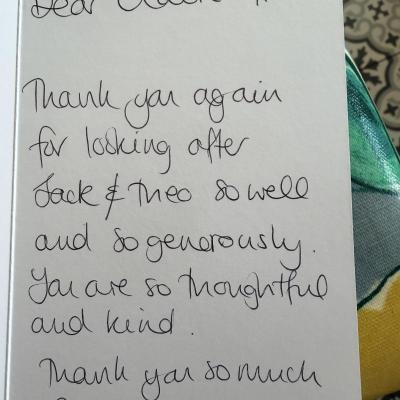 Dear
Thank you again
for looking after
Jack & Theo so well
and so generously.
You are so thoughtful
and kind.
Thank you so much